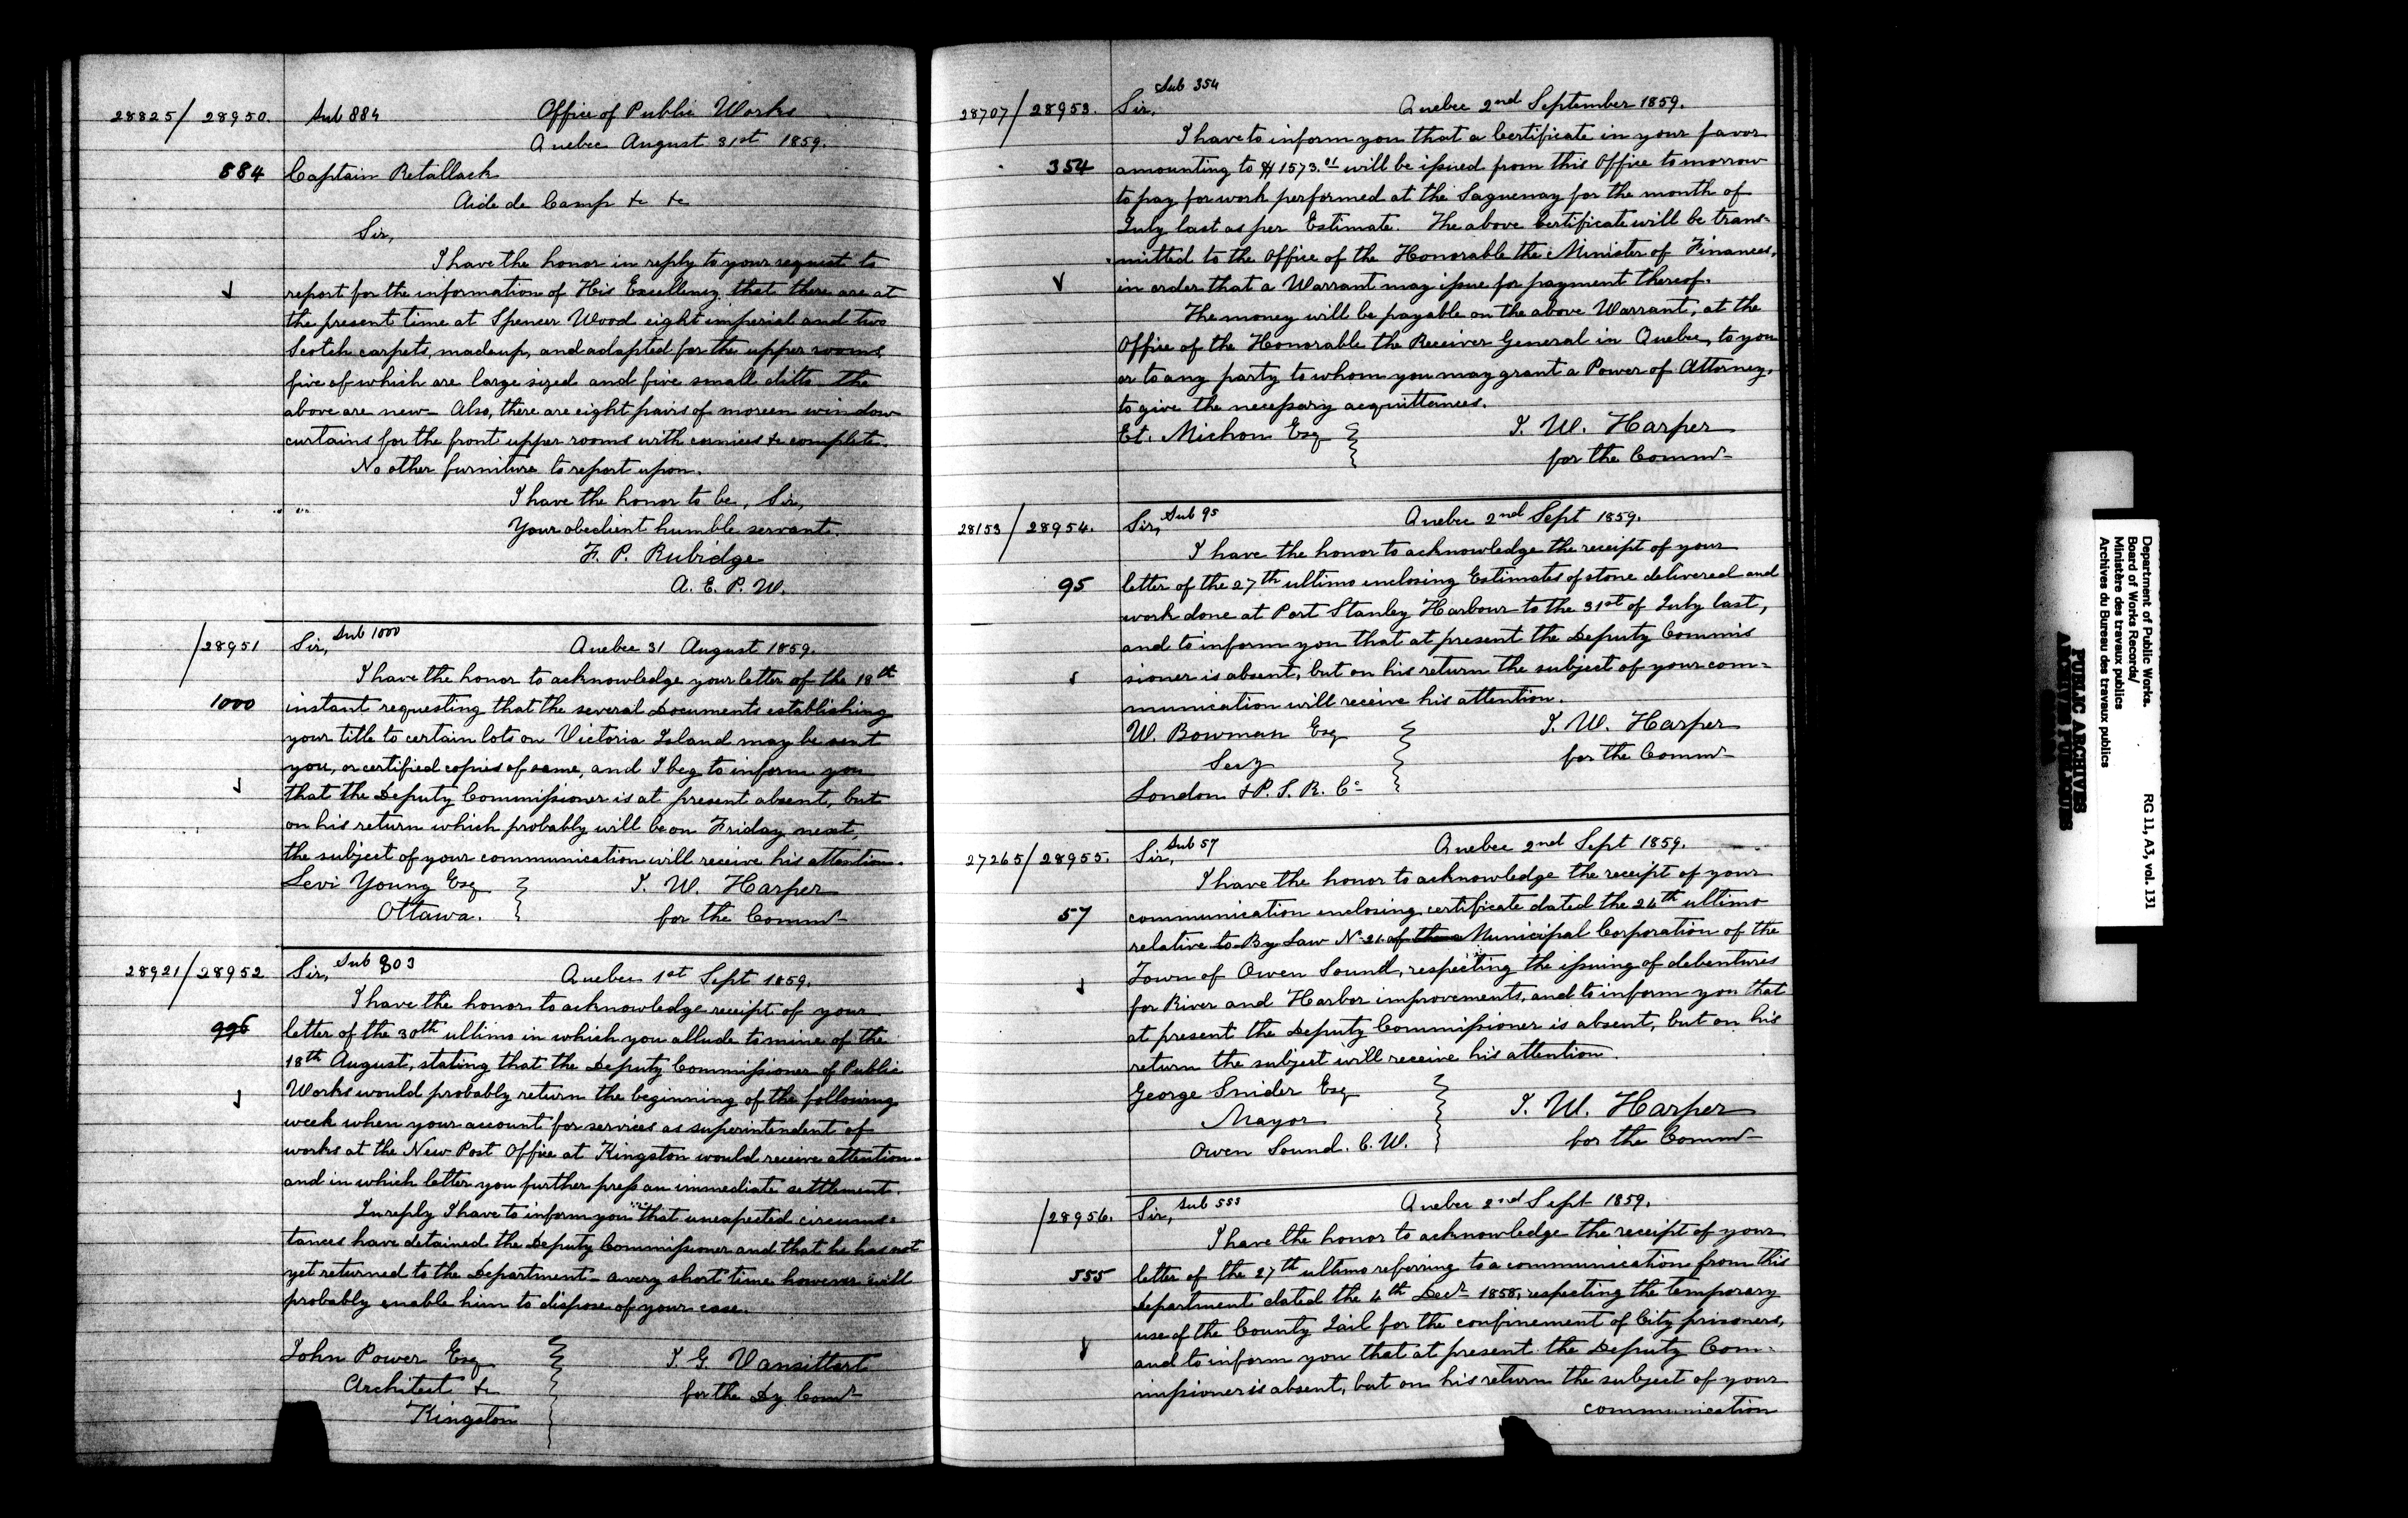 28825/28950. Sub 884 Office of Public Works
Quebec August 31st 1859.
884 Captain Retallack
Aide de Camp &c &c
Sir,
I have the honor in reply to your request to
report for the information of His Excellency that there are at
the present time at Spencer Wood eight imperial and two
Scotch carpets, made up, and adapted for the upper rooms,
five of which are large sized and five small ditto the
above are new – Also, there are eight pairs of moreen window
curtains for the front upper rooms with cornices &c complete.
No other furniture to report upon.
I have the honor to be, Sir,
Your obedient humble servant.
F. P. Rubidge
A. E. P. W.
/28951 Sir, Sub 1000 Quebec 31 August 1859.
I have the honor to acknowledge your letter of the 18th
1000 instant requesting that the several Documents establishing
your title to certain lots on Victoria Island may be sent
you, or certified copies of same, and I beg to inform you
that the Deputy Commissioner is at present absent, but
on his return which probably will be on Friday next,
the subject of your communication will receive his attention.
Levi Young Esq T. W. Harper
Ottawa. for the Commr
28921/28952 Sir, Sub 803 Quebec 1st Sept 1859.
I have the honor to acknowledge receipt of your
996 letter of the 30th ultimo in which you allude to mine of the
18th August, stating that the Deputy Commissioner of Public
Works would probably return the beginning of the following
week when your account for services as superintendent of
works at the New Post Office at Kingston would receive attention
and in which letter you further press an immediate settlement.
In reply I have to inform you that unexpected circums=
tances have detained the Deputy Commissioner and that he has not
yet returned to the Department – a very short time however will
probably enable him to dispose of your case.
John Power Esq T. G. Vansittart
Architect &c for the Dy Comr
Kingston
Sub 354
28707/28953. Sir, Quebec 2nd September 1859.
I have to inform you that a Certificate in your favor
354 amounting to $1573.01 will be issued from this Office tomorrow
to pay for work performed at the Saguenay for the month of
July last as per Estimate. The above Certificate will be trans=
mitted to the Office of the Honorable the Minister of Finances,
in order that a Warrant may issue for payment thereof.
The money will be payable on the above Warrant, at the
Office of the Honorable the Receiver General in Quebec, to you
or to any party to whom you may grant a Power of Attorney,
to give the necessary acquittances.
Et. Michon Esq T. W. Harper
for the Commr
28153/28954. Sir, Sub 95 Quebec 2nd Sept 1859.
I have the honor to acknowledge the receipt of your
95 letter of the 27th ultimo enclosing Estimates of stone delivered and
work done at Port Stanley Harbour to the 31st of July last,
and to inform you that at present the Deputy Commis
sioner is absent, but on his return the subject of your com=
munication will receive his attention.
W. Bowman Esq T. W. Harper
Secy for the Commr
London & P. S. R. Co
27265/28955. Sir, Sub 57 Quebec 2nd Sept 1859.
I have the honor to acknowledge the receipt of your
57 communication enclosing certificate dated the 24th ultimo
relative to By Law No 21 of the Municipal Corporation of the
Town of Owen Sound, respecting the issuing of debentures
for River and Harbor improvements, and to inform you that
at present the Deputy Commissioner is absent, but on his
return the subject will receive his attention.
George Snider Esq
Mayor T. W. Harper
Owen Sound. C. W. for the Commr
/28956. Sir, Sub 555 Quebec 2nd Sept 1859.
I have the honor to acknowledge the receipt of your
555 letter of the 27th ultimo referring to a communication from this
Department dated the 4th Decr 1858, respecting the temporary
use of the County Jail for the confinement of City prisoners,
and to inform you that at present the Deputy Com=
missioner is absent, but on his return the subject of your
communication
Department of Public Works.
Board of Works Records/
Ministère des travaux publics
Archives du Bureau des travaux publics
RG 11, A3, vol. 131
PUBLIC ARCHIVES
ARCHIVES PUBLIQUES